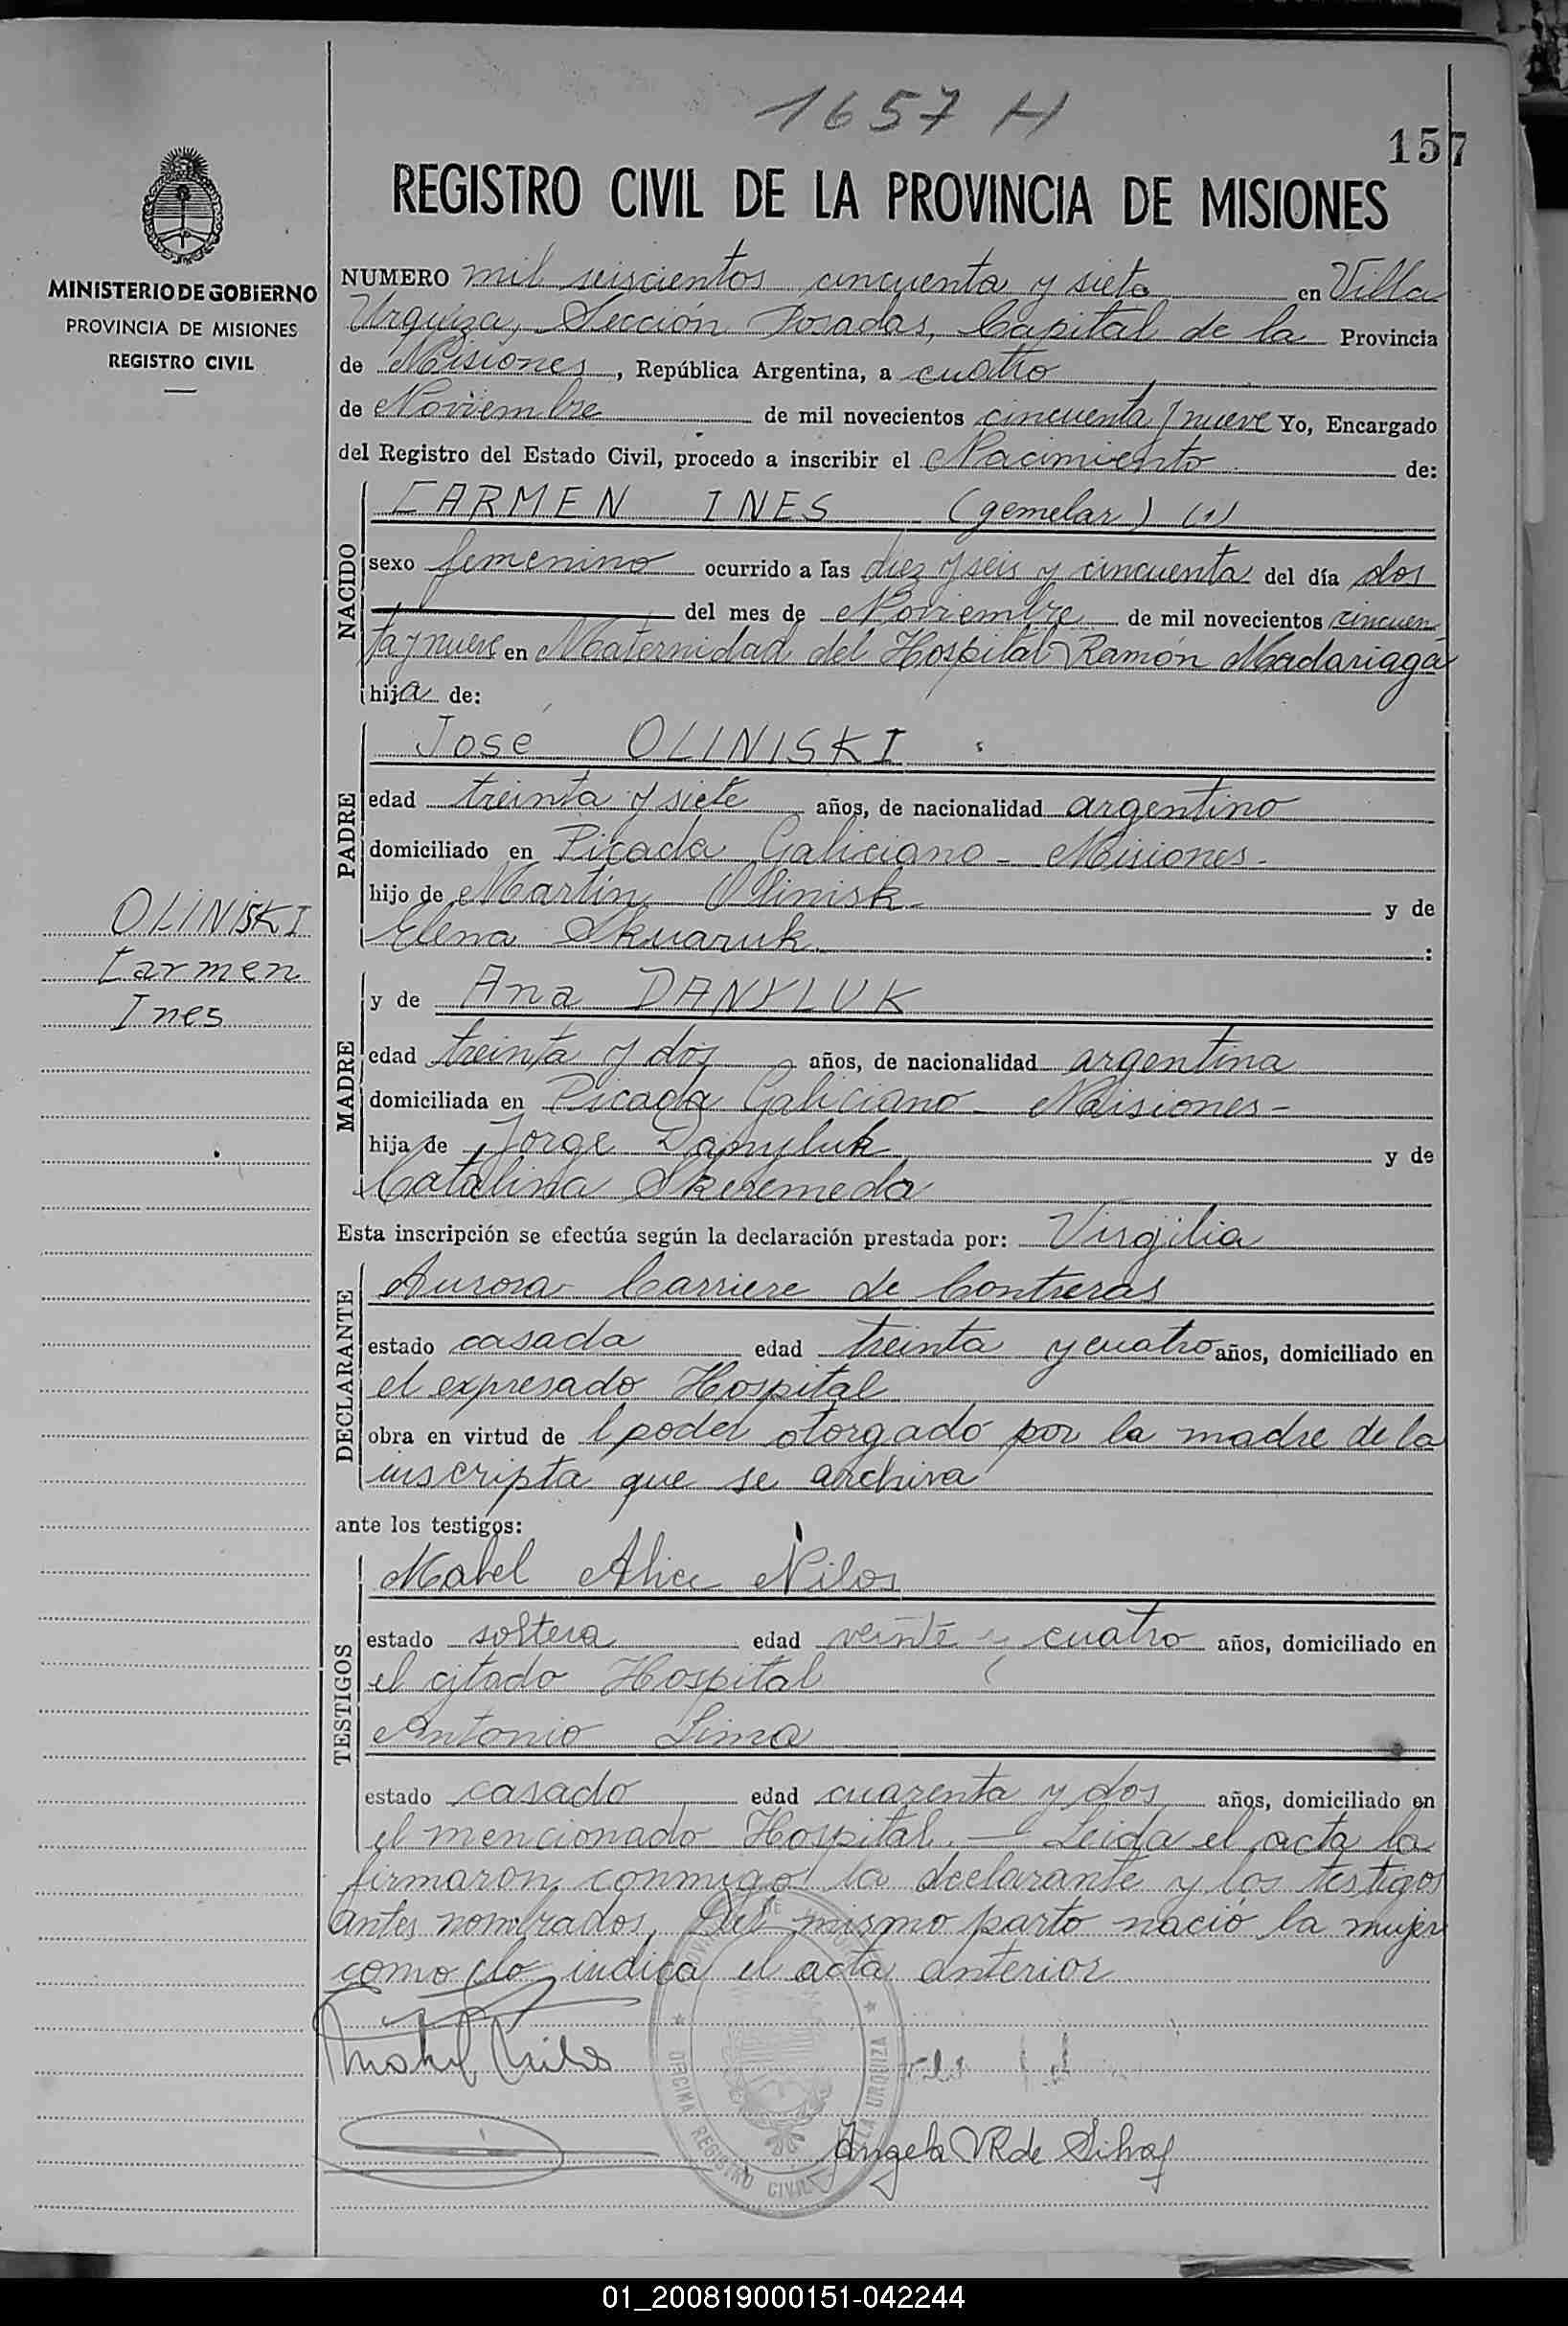 1657 H
157
REGISTRO CIVIL DE LA PROVINCIA DE MISIONES
MINISTERIO DE GOBIERNO
PROVINCIA DE MISIONES
REGISTRO CIVIL
NUMERO mil seiscientos cincuenta y siete en Villa
Urquiza, Sección Posadas, Capital de la Provincia
de Misiones, República Argentina, a cuatro
de Noviembre de mil novecientos cincuenta y nueve Yo, Encargado
del Registro del Estado Civil, procedo a inscribir el Nacimiento de:
NACIDO
CARMEN INES (gemelar) (1)
sexo femenino ocurrido a las diez y seis y cincuenta del día dos
del mes de Noviembre de mil novecientos cincuen-
ta y nueve en Maternidad del Hospital Ramón Madariaga
hija de:
PADRE
José OLINISKI
edad treinta y siete años, de nacionalidad argentino
domiciliado en Picada Galiciano - Misiones -
hijo de Martín Olinisk - y de
Elena Skuaruk :
OLINISKI
Carmen
Ines
MADRE
y de Ana DANYLUK
edad treinta y dos años, de nacionalidad argentina
domiciliada en Picada Galiciano - Misiones -
hija de Jorge Danyluk y de
Catalina Skeremeda
Esta inscripción se efectúa según la declaración prestada por: Virgilia
DECLARANTE
Aurora Carriere de Contreras
estado casada edad treinta y cuatro años, domiciliado en
el expresado Hospital
obra en virtud de l poder otorgado por la madre de la
inscripta que se archiva
ante los testigos:
TESTIGOS
Mabel Alice Nilos
estado soltera edad veinte y cuatro años, domiciliado en
el citado Hospital
Antonio Lima
estado casado edad cuarenta y dos años, domiciliado en
el mencionado Hospital. - Leida el acta la
firmaron conmigo la declarante y los testigos
antes nombrados. Del mismo parto nació la mujer
como lo indica el acta anterior
OFICINA REGISTRO CIVIL URQUIZA
Angela VR de Silva
01_200819000151-042244